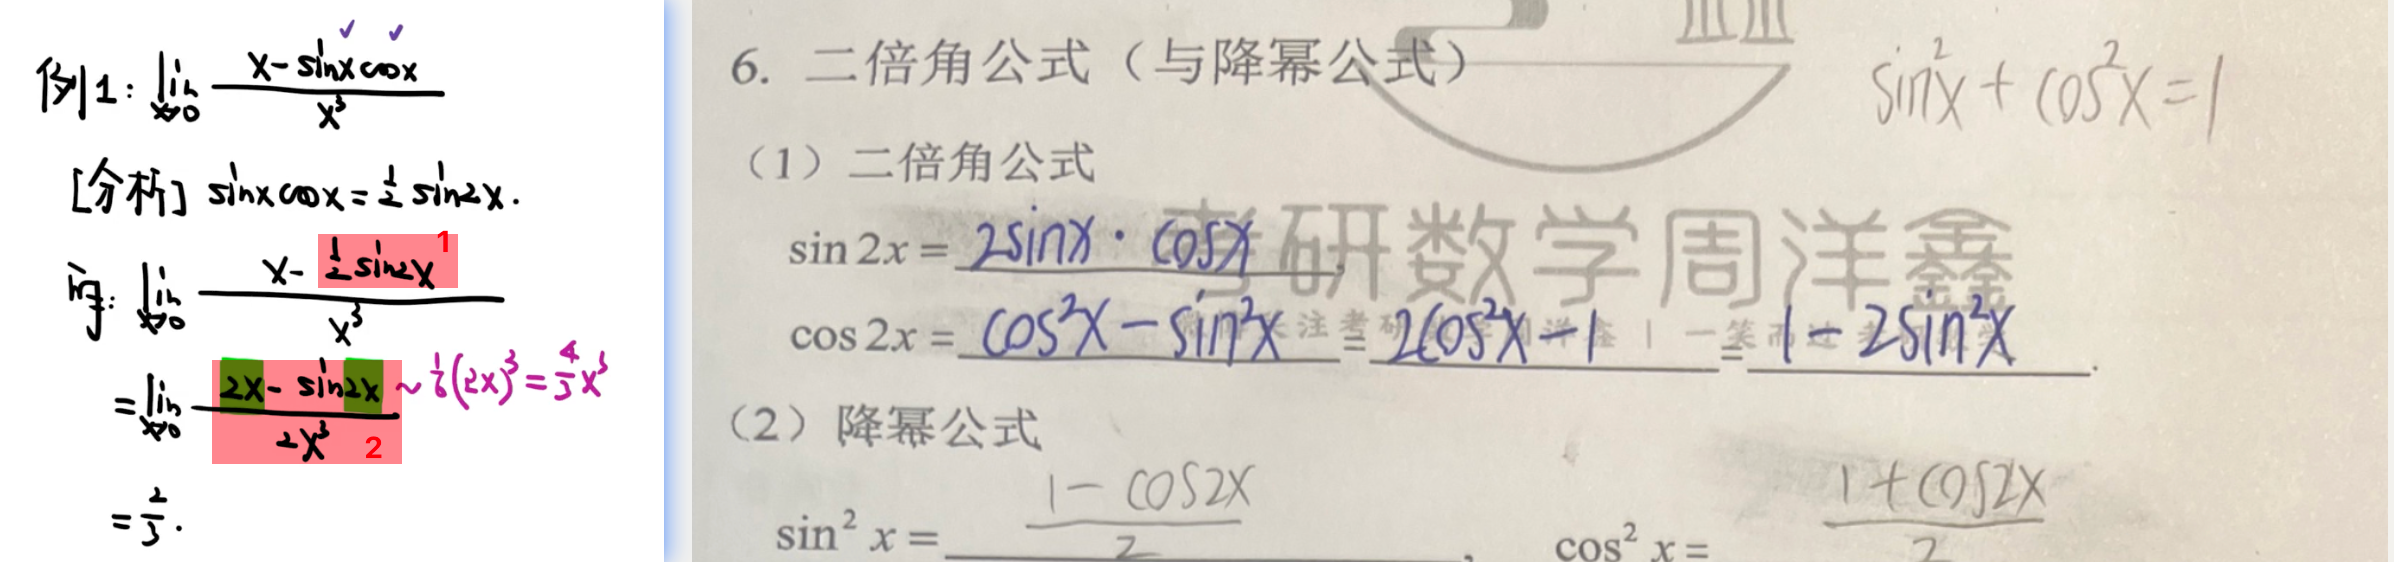 例1: lim x→0 (x - sinx cosx)/x³
[分析] sinx cosx = 1/2 sin2x.
原: lim x→0 (x - 1/2 sin2x)/x³
1
= lim x→0 (2x - sin2x)/2x³ ~ 1/6(2x)³ = 4/3x³
2
= 2/3.
6. 二倍角公式（与降幂公式）
sin²x + cos²x = 1
（1）二倍角公式
sin 2x = 2sinx · cosx.
考研数学周洋鑫
cos 2x = cos²x - sin²x = 2cos²x - 1 = 1 - 2sin²x.
（2）降幂公式
sin² x = (1 - cos2x)/2, cos² x = (1 + cos2x)/2